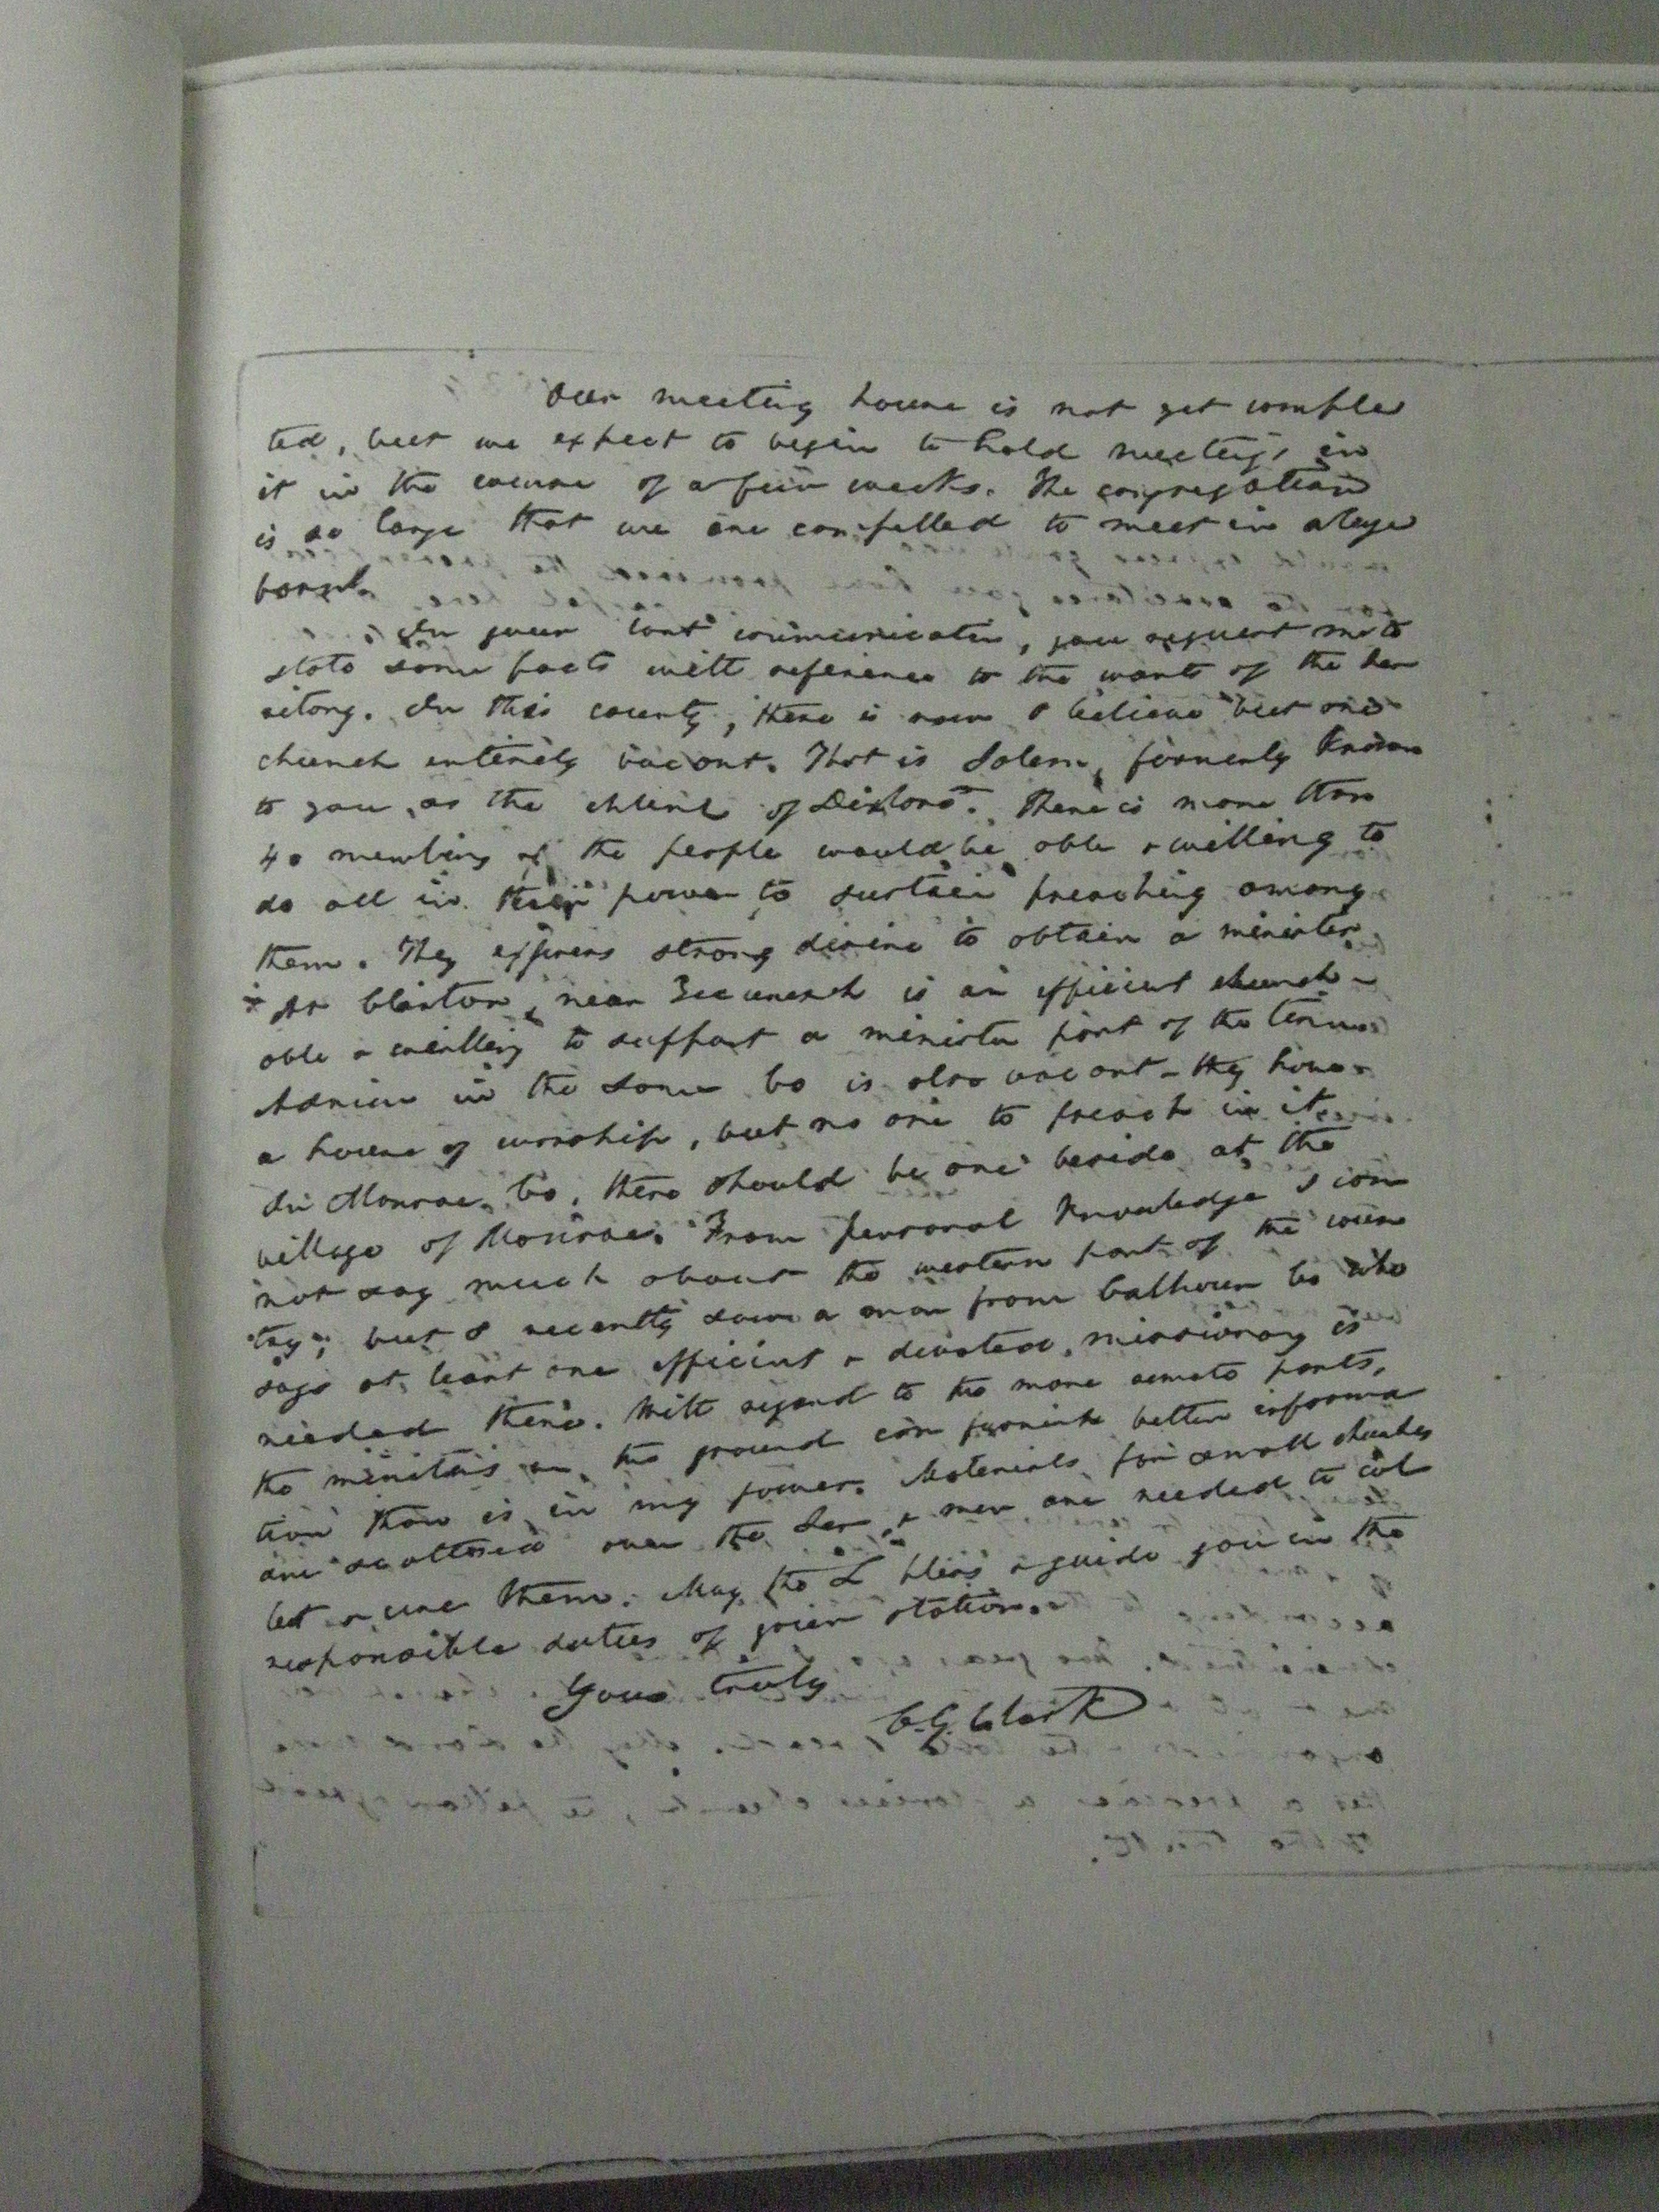 Our meeting house is not yet comple
ted, but we expect to begin to hold meetings in
it in the course of a few weeks. The congregation
is so large that we are compelled to meet in a large
barn.
In your last communication, you request me to
state some facts with reference to the wants of the ter
ritory. In this county, there is now I believe but one
church entirely vacant. That is Salem, formerly known
to you, as the church of Dixboro. There is more than
40 members & the people would be able & willing to
do all in their power to sustain preaching among
them. They express strong desire to obtain a minister.
At Clinton, near Tecumseh is an efficient church -
able & willing to support a minister part of the time.
Adrian in the same Co is also vacant - they have
a house of worship, but no one to preach in it.
In Monroe Co, there should be one beside at the
village of Monroe. From personal knowledge I can
not say much about the western part of the coun
try; but I recently saw a man from Calhoun Co who
says at least one efficient & devoted missionary is
needed there. With regard to the more remote parts,
the ministers on the ground can furnish better informa
tion than is in my power. Materials for small churches
are scattered over the Ter, & men are needed to col
lect & use them. May the L bless & guide you in the
responsible duties of your station.
Yours truly
C.G. Clark